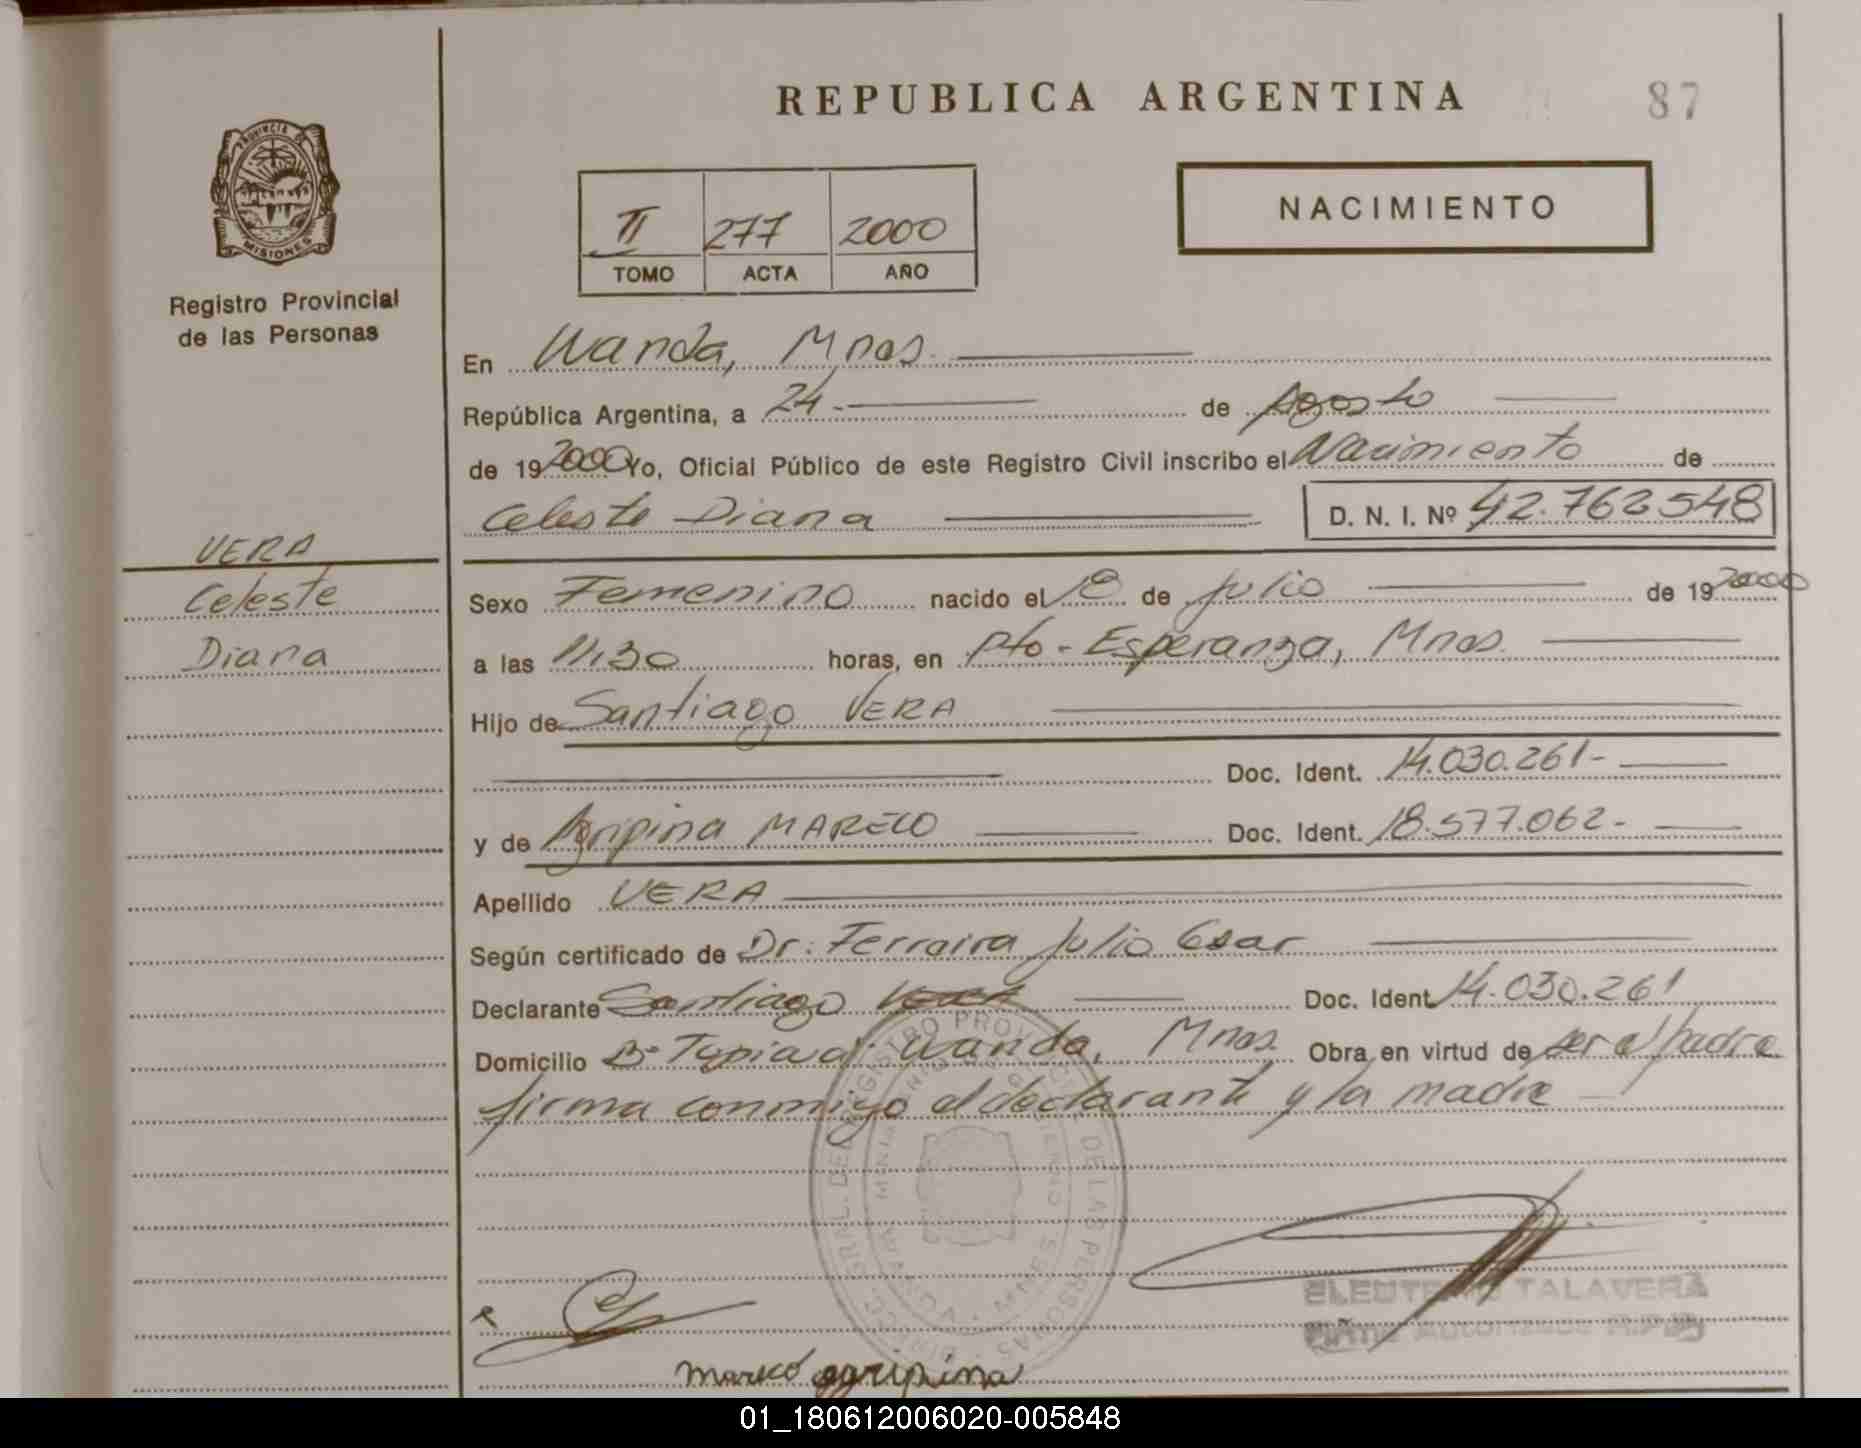 REPUBLICA ARGENTINA
87
PROVINCIA DE
MISIONES
Registro Provincial
de las Personas
II 277 2000
TOMO ACTA AÑO
NACIMIENTO
En Wanda, Mnes.
República Argentina, a 24.- de Agosto
de 19 2000 Yo, Oficial Público de este Registro Civil inscribo el Nacimiento de
Celeste Diana
D. N. I. Nº 42.762548
VERA
Celeste
Diana
Sexo Femenino nacido el de Julio de 19 2000
a las 11,30 horas, en Pto- Esperanza, Mnes.
Hijo de Santiago VERA
Doc. Ident. 14.030.261-
y de Agripina MARECO Doc. Ident. 18.577.062-
Apellido VERA
Según certificado de Dr. Ferraira Julio Cesar
Declarante Santiago Vera Doc. Ident 14.030.261
Domicilio Bº Wanda, Mnes. Obra en virtud de ser el padre
firma conmigo el declarante y la madre
REGISTRO PROVINCIAL DE LAS PERSONAS
ELEUTERIO TALAVERA
Firma Autorizada R.P.P.
mareco agripina
01_180612006020-005848